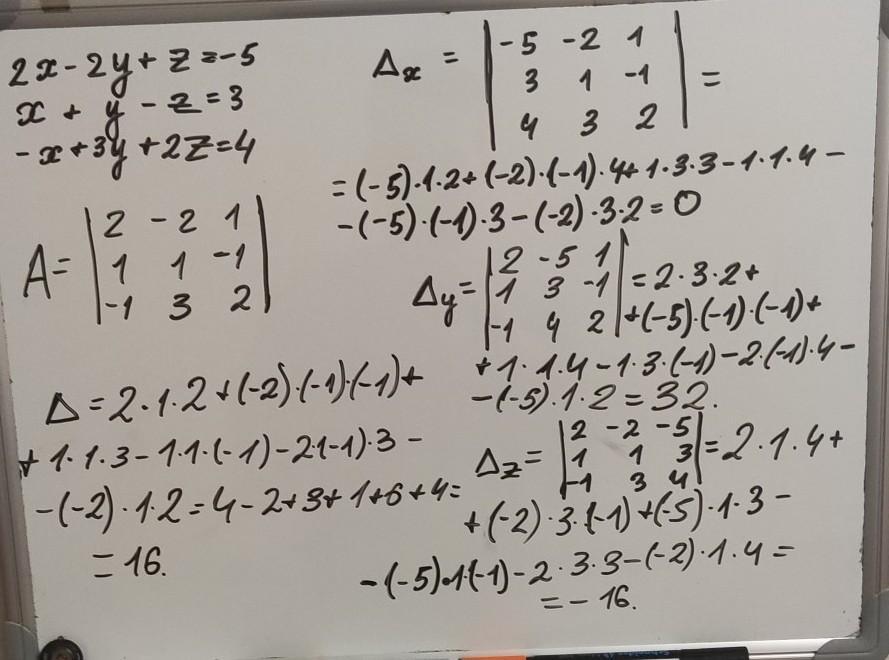 2x-2y+z=-5
x+y-z=3
-x+3y+2z=4
A= | 2 -2 1 |
| 1 1 -1 |
| -1 3 2 |
Δ=2·1·2+(-2)·(-1)·(-1)+
+1·1·3-1·1·(-1)-2·(-1)·3-
-(-2)·1·2=4-2+3+1+6+4=
=16.
Δx = | -5 -2 1 |
| 3 1 -1 | =
| 4 3 2 |
=(-5)·1·2+(-2)·(-1)·4+1·3·3-1·1·4-
-(-5)·(-1)·3-(-2)·3·2=0
Δy= | 2 -5 1 | =2·3·2+
| 1 3 -1 | +(-5)·(-1)·(-1)+
| -1 4 2 |
+1·1·4-1·3·(-1)-2·(-1)·4-
-(-5)·1·2=32.
Δz= | 2 -2 -5 | =2·1·4+
| 1 1 3 |
| -1 3 4 |
+(-2)·3·(-1)+(-5)·1·3-
-(-5)·1·(-1)-2·3·3-(-2)·1·4=
=-16.